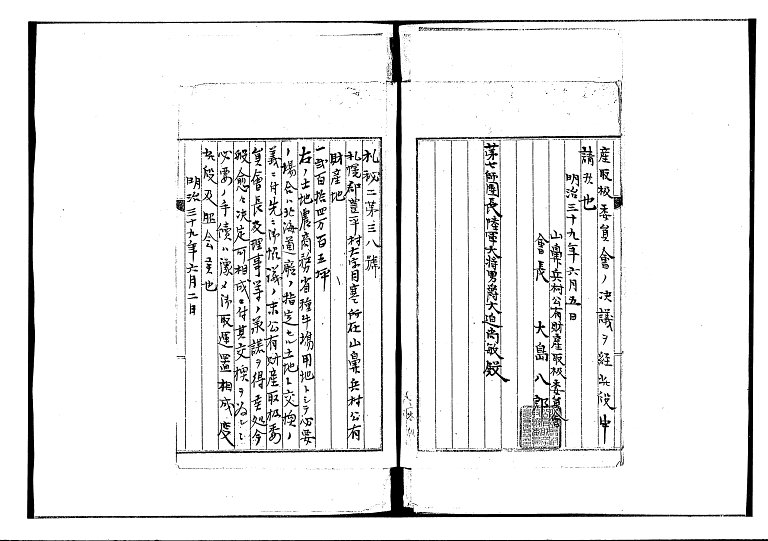 産取扱委員會ノ決議ヲ経此段申
請候也
明治三十九年六月五日
山鼻兵村公有財産取扱委員會
會長 大島八郎
第七師團長陸軍大将男爵大迫尚敏殿
札
二第三八號
札幌郡豊平村大字月寒所在山鼻兵村公有
財産地
一弐百拾四万百五坪
右ノ土地農商務省種牛場用地トシテ必要
ノ場合ハ北海道廳ノ指定セル土地ト交換ノ
義ニ付先ニ御協議ノ末公有財産取扱委
員會長及理事等ノ承諾ヲ得
候處今
般愈々決定可相成ニ付其交換ヲ為ニ
必要ノ手續ハ豫メ御取運置相成度
此段及照会候也
明治三十九年六月二日